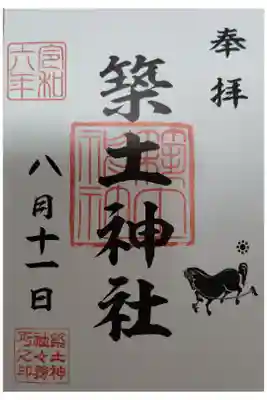 奉拝
築土神社
八月十一日
令和
六年
築土
神社
築土神
社々務
所之印